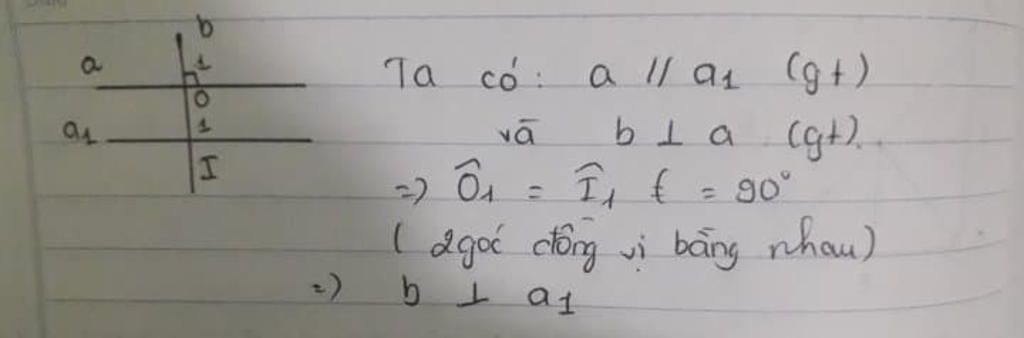 b
a
1
O
a1
1
I
Ta có: a // a1 (gt)
và b ⊥ a (gt).
=> Ô1 = Î1 = 90°
( 2 góc đồng vị bằng nhau)
=> b ⊥ a1